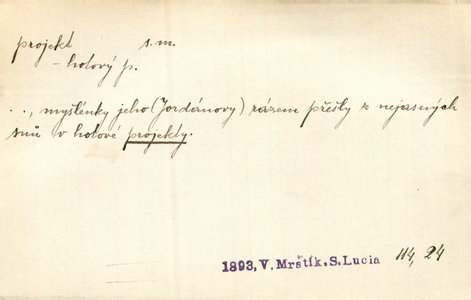 projekt s.m.
– hotový p.
..., myšlénky jeho (Jordánovy) rázem přešly z nejasných
snů v hotové projekty.
1893, V. Mrštík, S. Lucia 114, 24